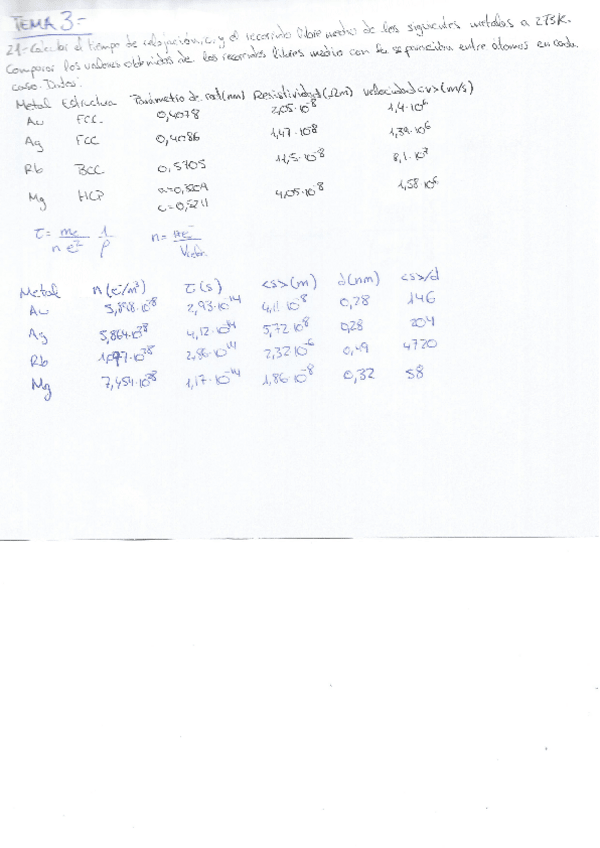 TEMA 3.-
21.- Calcular el tiempo de relajación, τ, y el recorrido libre medio de los siguientes metales a 273K.
Comparar los valores obtenidos de los recorridos libres medio con la separación entre átomos en cada
caso. Datos:
Metal Estructura Parámetro de red (nm) Resistividad (Ωm) velocidad <v> (m/s)
Au FCC 0,4078 2,05·10⁻⁸ 1,4·10⁶
Ag FCC 0,4086 1,47·10⁻⁸ 1,39·10⁶
Rb BCC 0,5705 11,5·10⁻⁸ 8,1·10⁷
Mg HCP a=0,3209 4,05·10⁻⁸ 1,58·10⁶
c=0,5211
τ = me/n e² 1/ρ n = nº e⁻/Vcelda
Metal n (e⁻/m³) τ (s) <s> (m) d (nm) <s>/d
Au 5,898·10²⁸ 2,93·10⁻¹⁴ 4,1·10⁻⁸ 0,28 146
Ag 5,864·10²⁸ 4,12·10⁻¹⁴ 5,72·10⁻⁸ 0,28 204
Rb 1,077·10²⁸ 2,86·10⁻¹⁴ 2,32·10⁻⁶ 0,49 4720
Mg 7,454·10²⁸ 1,17·10⁻¹⁴ 1,86·10⁻⁸ 0,32 58